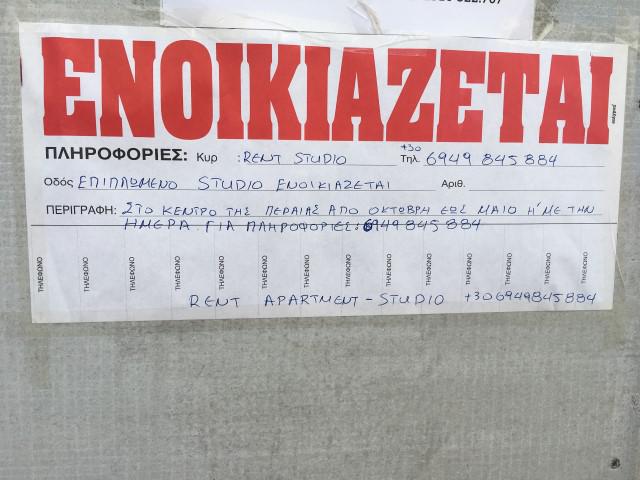 ΕΝΟΙΚΙΑΖΕΤΑΙ
ΠΛΗΡΟΦΟΡΙΕΣ: Κυρ : RENT STUDIO Τηλ. +30 6949 845 884
Οδός ΕΠΙΠΛΩΜΕΝΟ STUDIO ΕΝΟΙΚΙΑΖΕΤΑΙ Αριθ.
ΠΕΡΙΓΡΑΦΗ: ΣΤΟ ΚΕΝΤΡΟ ΤΗΣ ΠΕΡΑΙΑΣ ΑΠΟ ΟΚΤΩΒΡΗ ΕΩΣ ΜΑΙΟ Ή ΜΕ ΤΗΝ
ΗΜΕΡΑ. ΓΙΑ ΠΛΗΡΟΦΟΡΙΕΣ: 6949 845 884
ΤΗΛΕΦΩΝΟ ΤΗΛΕΦΩΝΟ ΤΗΛΕΦΩΝΟ ΤΗΛΕΦΩΝΟ ΤΗΛΕΦΩΝΟ ΤΗΛΕΦΩΝΟ ΤΗΛΕΦΩΝΟ ΤΗΛΕΦΩΝΟ ΤΗΛΕΦΩΝΟ ΤΗΛΕΦΩΝΟ ΤΗΛΕΦΩΝΟ ΤΗΛΕΦΩΝΟ ΤΗΛΕΦΩΝΟ
RENT APARTMENT - STUDIO +306949845884